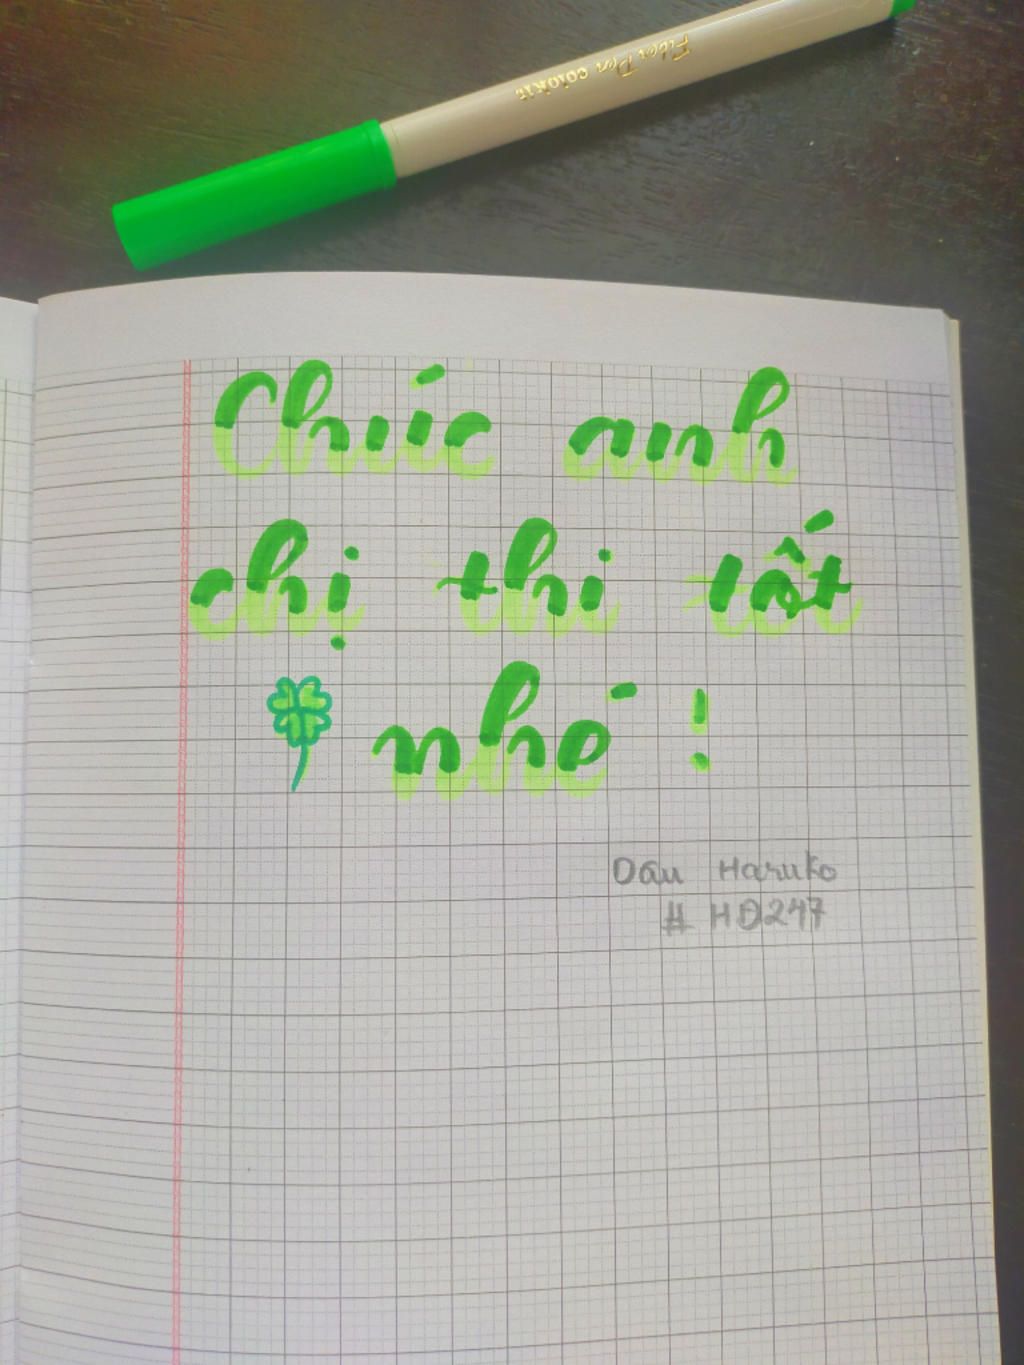 Fiber Pen COLOKIT
Chúc anh
chị thi tốt
nhé !
Dâu Haruko
# HD247